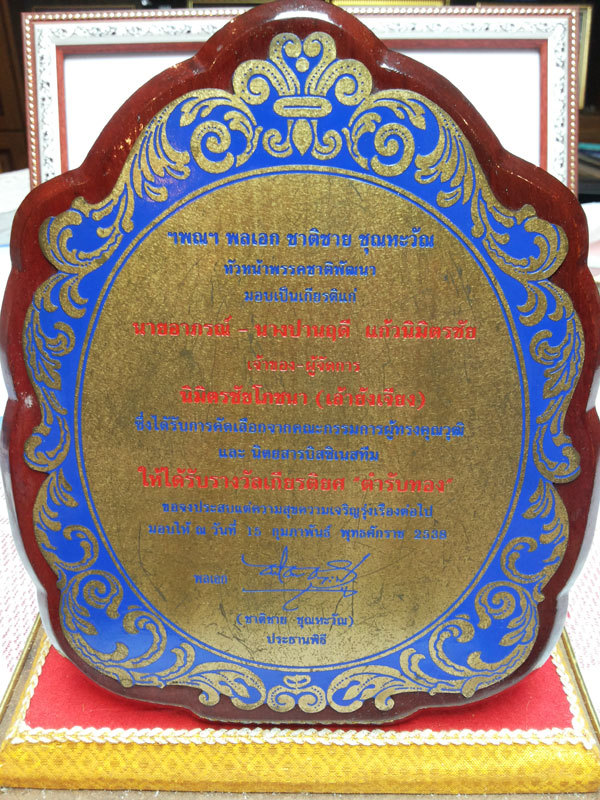 ฯพณฯ พลเอก ชาติชาย ชุณหะวัณ
หัวหน้าพรรคชาติพัฒนา
มอบเป็นเกียรติแก่
นายลาภรณ์ - นางปานฤดี แก้วนิมิตรชัย
เจ้าของ-ผู้จัดการ
นิมิตรชัยโภชนา (เล้าฮังเจียง)
ซึ่งได้รับการคัดเลือกจากคณะกรรมการผู้ทรงคุณวุฒิ
และ นิตยสารบิสซิเนสทีม
ให้ได้รับรางวัลเกียรติยศ "ตำรับทอง"
ขอจงประสบแต่ความสุขความเจริญรุ่งเรืองต่อไป
มอบให้ ณ วันที่ 15 กุมภาพันธ์ พุทธศักราช 2538
พลเอก
(ชาติชาย ชุณหะวัณ)
ประธานพิธี